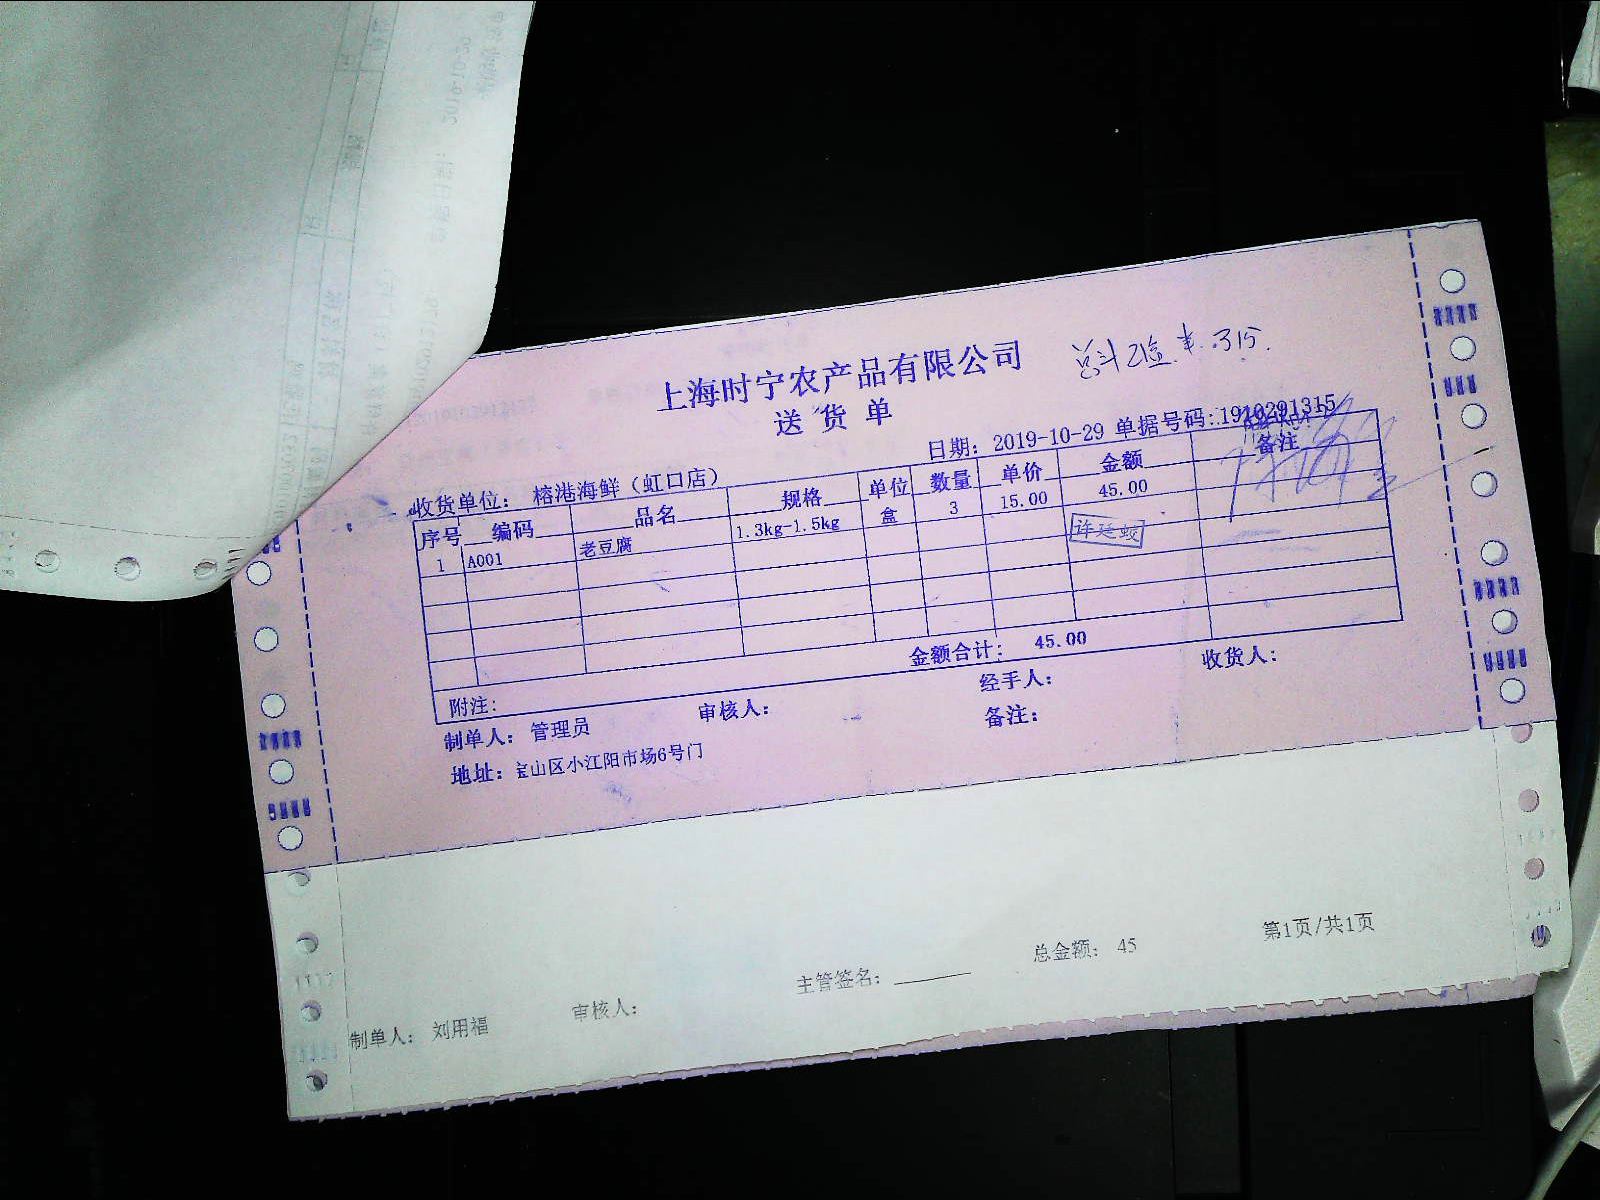 上海时宁农产品有限公司
送货单
日期: 2019-10-29 单据号码:1910291315
收货单位: 榕港海鲜（虹口店）
序号 编码 品名 规格 单位 数量 单价 金额 备注
1 A001 老豆腐 1.3kg-1.5kg 盒 3 15.00 45.00
许廷蛟
金额合计: 45.00
附注:
制单人: 管理员 审核人: 经手人: 收货人:
地址: 宝山区小江阳市场6号门 备注:
制单人: 刘用福 审核人: 主管签名: 总金额: 45 第1页/共1页